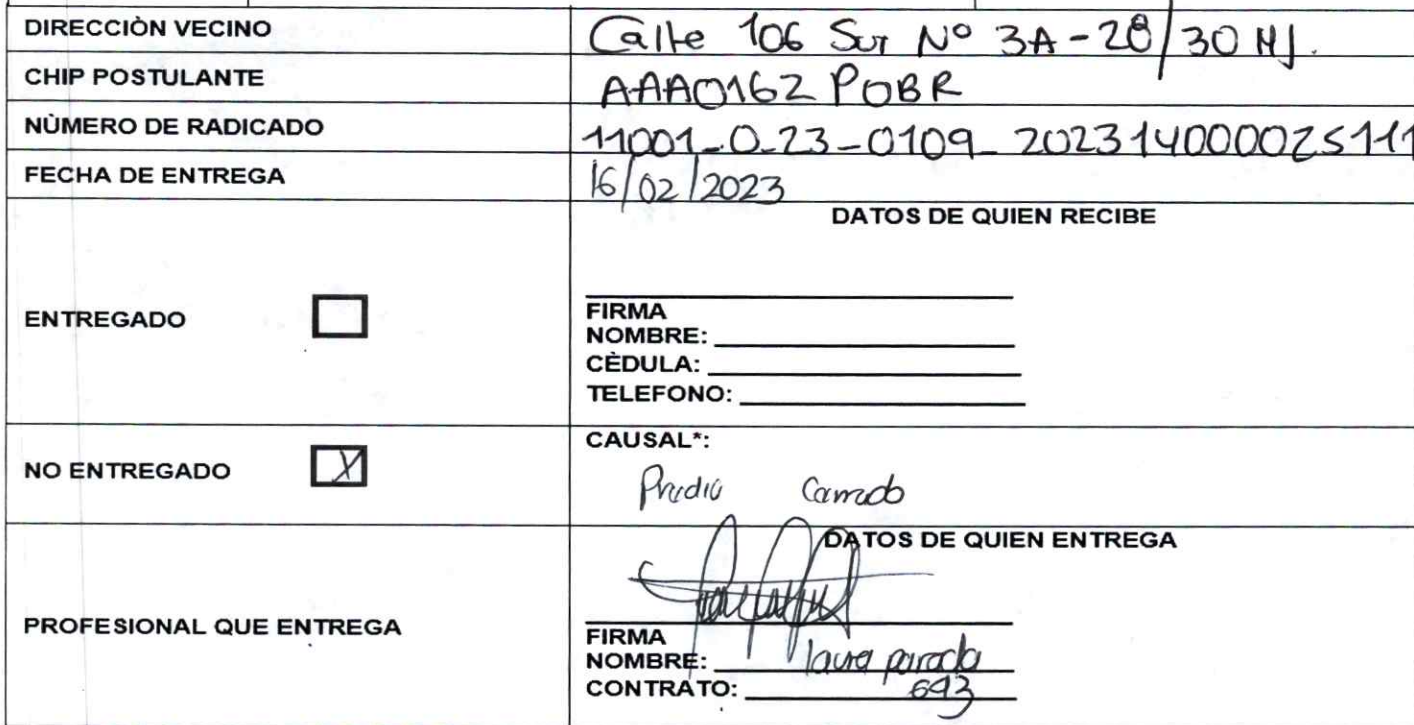 DIRECCIÒN VECINO Calle 106 Sur Nº 3A-28/30 MJ.
CHIP POSTULANTE AAA0162 POBR
NÙMERO DE RADICADO 11001-0-23-0109_20231400025111
FECHA DE ENTREGA 16/02/2023
DATOS DE QUIEN RECIBE
ENTREGADO
FIRMA
NOMBRE:
CÈDULA:
TELEFONO:
NO ENTREGADO X
CAUSAL*:
Predio Cerrado
DATOS DE QUIEN ENTREGA
PROFESIONAL QUE ENTREGA
FIRMA
NOMBRE: laura parada
CONTRATO: 693